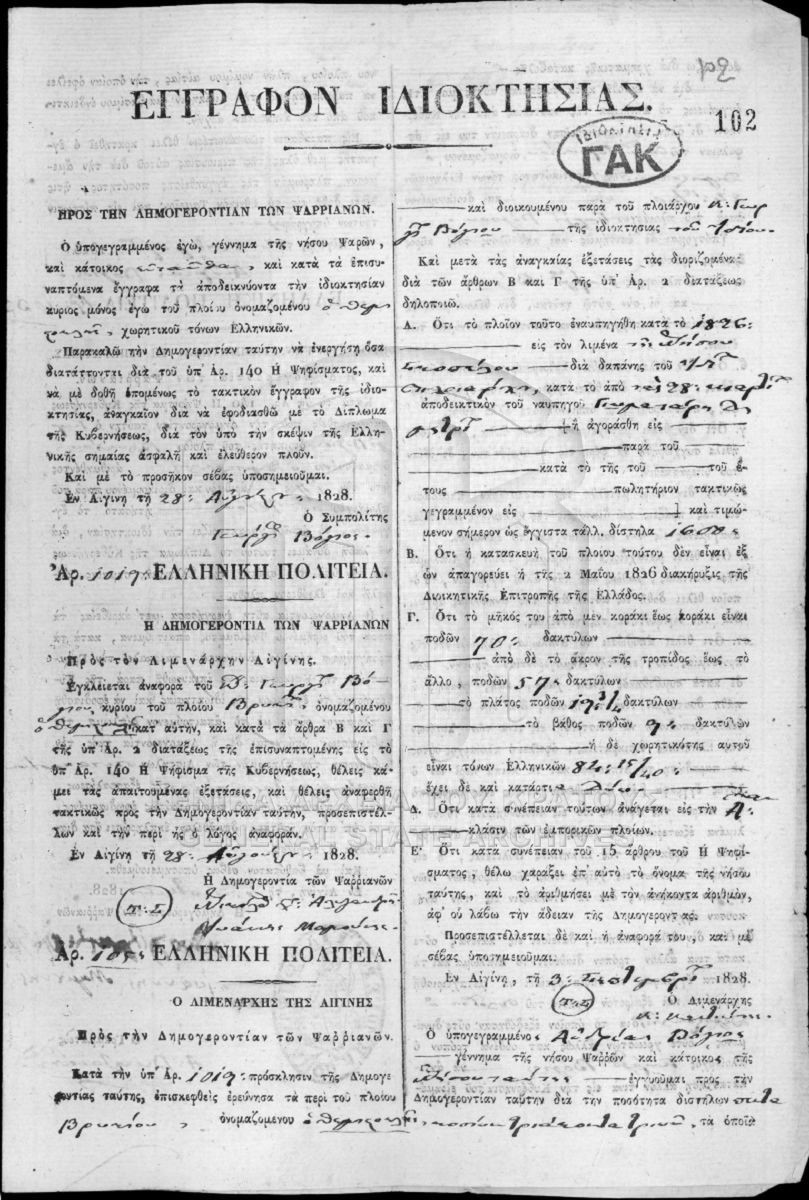 102
ΕΓΓΡΑΦΟΝ ΙΔΙΟΚΤΗΣΙΑΣ.
102
ΙΔΙΟΚΤΗΣΙΑ
ΓΑΚ
ΠΡΟΣ ΤΗΝ ΔΗΜΟΓΕΡΟΝΤΙΑΝ ΤΩΝ ΨΑΡΡΙΑΝΩΝ.
Ο ὑπογεγραμμένος ἐγὼ, γέννημα τῆς νήσου Ψαρῶν,
καὶ κάτοικος ἐνταῦθα, καὶ κατὰ τὰ ἐπισυ-
ναπτόμενα ἔγγραφα τὰ ἀποδεικνύοντα τὴν ἰδιοκτησίαν
κύριος μόνος ἐγὼ τοῦ πλοίου ὀνομαζομένου ὁ Θεμι
στοκλῆς χωρητικοῦ τόνων Ἑλληνικῶν.
Παρακαλῶ τὴν Δημογεροντίαν ταύτην νὰ ἐνεργήσῃ ὅσα
διατάττονται διὰ τοῦ ὑπ' Ἀρ. 140 Η Ψηφίσματος, καὶ
νὰ μὲ δοθῇ ἑπομένως τὸ τακτικὸν ἔγγραφον τῆς ἰδιο-
κτησίας, ἀναγκαῖον διὰ νὰ ἐφοδιασθῶ μὲ τὸ Δίπλωμα
τῆς Κυβερνήσεως, διὰ τὸν ὑπὸ τὴν σκέψιν τῆς Ἑλλη-
νικῆς σημαίας ἀσφαλῆ καὶ ἐλεύθερον πλοῦν.
Καὶ μὲ τὸ προσῆκον σέβας ὑποσημειοῦμαι.
Ἐν Αἰγίνῃ τῇ 28: Αὐγούστου 1828.
Ὁ Συμπολίτης
Γεώργ. Βόγιος
Ἀρ. 1019: ΕΛΛΗΝΙΚΗ ΠΟΛΙΤΕΙΑ.
Η ΔΗΜΟΓΕΡΟΝΤΙΑ ΤΩΝ ΨΑΡΡΙΑΝΩΝ
Πρὸς τὸν Λιμενάρχην Αἰγίνης.
Ἐγκλείεται ἀναφορὰ τοῦ Γεωργ. Βό
γιου κυρίου τοῦ πλοίου Βρικ. ὀνομαζομένου
ὁ Θεμιστοκλῆς κατ' αὐτὴν, καὶ κατὰ τὰ ἄρθρα Β καὶ Γ
τῆς ὑπ' Ἀρ. 2 διατάξεως τῆς ἐπισυναπτομένης εἰς τὸ
ὑπ' Ἀρ. 140 Η Ψήφισμα τῆς Κυβερνήσεως, θέλεις κά-
μει τὰς ἀπαιτουμένας ἐξετάσεις, καὶ θέλεις ἀναφερθῆ
τακτικῶς πρὸς τὴν Δημογεροντίαν ταύτην, προσεπιστέλ-
λων καὶ τὴν περὶ ἧς ὁ λόγος ἀναφοράν.
Ἐν Αἰγίνῃ τῇ 28: Αὐγούστου 1828.
Ἡ Δημογεροντία τῶν Ψαρριανῶν
Τ.Σ.
Ἀρ. 105: ΕΛΛΗΝΙΚΗ ΠΟΛΙΤΕΙΑ.
Ο ΛΙΜΕΝΑΡΧΗΣ ΤΗΣ ΑΙΓΙΝΗΣ
Πρὸς τὴν Δημογεροντίαν τῶν Ψαρριανῶν.
Κατὰ τὴν ὑπ' Ἀρ. 1019: πρόσκλησιν τῆς Δημογε
ροντίας ταύτης, ἐπισκεφθεὶς ἐρεύνησα τὰ περὶ τοῦ πλοίου
Βρικίου, ὀνομαζομενου ὁ Θεμιστοκλῆς
καὶ διοικουμένου παρὰ τοῦ πλοιάρχου κ: Γεωρ
γ. Βόγιου τῆς ἰδιοκτησίας τοῦ ἰδίου.
Καὶ μετὰ τὰς ἀναγκαίας ἐξετάσεις τὰς διοριζομένας
διὰ τῶν ἄρθρων Β καὶ Γ τῆς ὑπ' Ἀρ. 2 διατάξεως
δηλοποιῶ.
Α. Ὅτι τὸ πλοῖον τοῦτο ἐναυπηγήθη κατὰ τὸ 1826:
εἰς τὸν λιμένα τῆς Νήσου
Σκοπέλου διὰ δαπάνης τοῦ
κατὰ τὸ ἀπὸ 28:
ἀποδεικτικὸν τοῦ ναυπηγοῦ
ἢ ἀγοράσθη εἰς
παρὰ τοῦ
κατὰ τὸ τῆς τοῦ τοῦ ἔ-
τους πωλητήριον τακτικῶς
γεγραμμένον εἰς καὶ τιμώ-
μενον σήμερον ὡς ἔγγιστα τάλλ. δίστηλα 1600:
Β. Ὅτι ἡ κατασκευὴ τοῦ πλοίου τούτου δὲν εἶναι ἐξ
ὧν ἀπαγορεύει ἡ τῆς 2 Μαΐου 1826 διακήρυξις τῆς
Διοικητικῆς Ἐπιτροπῆς τῆς Ἑλλάδος.
Γ. Ὅτι τὸ μῆκός του ἀπὸ μὲν κοράκι ἕως κοράκι εἶναι
ποδῶν 70: δακτύλων
ἀπὸ δὲ τὸ ἄκρον τῆς τροπίδος ἕως τὸ
ἄλλο, ποδῶν 57: δακτύλων
τὸ πλάτος ποδῶν 19 3/4 δακτύλων
τὸ βάθος ποδῶν 9: δακτύλων
ἡ δὲ χωρητικότης αὐτοῦ
εἶναι τόνων Ἑλληνικῶν 84: 15/40:
ἔχει δὲ καὶ κατάρτια δύο
Δ. Ὅτι κατὰ συνέπειαν τούτων ἀνάγεται εἰς τὴν Δ:
κλάσιν τῶν ἐμπορικῶν πλοίων.
Ε' Ὅτι κατὰ συνέπειαν τοῦ 15 ἄρθρου τοῦ Η Ψηφί-
σματος, θέλω χαράξει ἐπ' αὐτὸ τὸ ὄνομα τῆς νήσου
ταύτης, καὶ τὸ ἀριθμήσει μὲ τὸν ἀνήκοντα ἀριθμὸν,
ἀφ' οὗ λάβω τὴν ἄδειαν τῆς Δημογεροντίας.
Προσεπιστέλλεται δὲ καὶ ἡ ἀναφορά του, καὶ μὲ
σέβας ὑποσημειοῦμαι.
Ἐν Αἰγίνῃ, τῇ 3: Σεπτεμβρ. 1828.
Τ.Σ. Ὁ Λιμενάρχης
Ὁ ὑπογεγραμμένος Βόγιος
γέννημα τῆς νήσου Ψαρρῶν καὶ κάτοικος τῆς
Νήσου ταύτης ἐγγυοῦμαι πρὸς τὴν
Δημογεροντίαν ταύτην διὰ τὴν ποσότητα διστήλων
τριάκοντα τριῶν, τὰ ὁποῖα